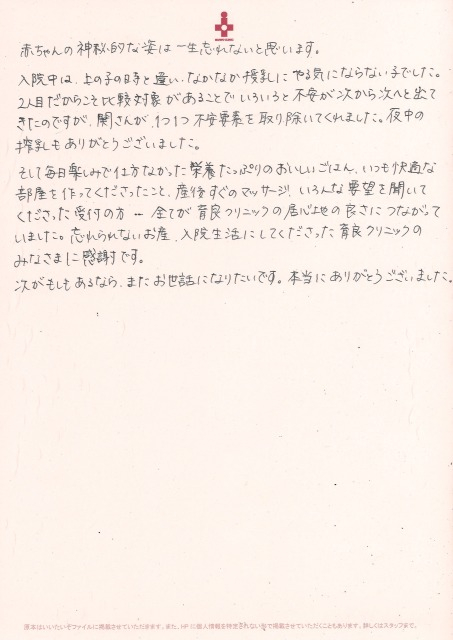 赤ちゃんの神秘的な姿は一生忘れないと思います。
入院中は、上の子の時と違い、なかなか授乳にやる気にならない子でした。
2人目だからこそ比較対象があることでいろいろと不安が次から次へと出て
きたのですが、関さんが、1つ1つ不安要素を取り除いてくれました。夜中の
搾乳もありがとうございました。
そして毎日楽しみで仕方なかった栄養たっぷりのおいしいごはん、いつも快適な
部屋を作ってくださったこと、産後すぐのマッサージ、いろんな要望を聞いて
くださった受付の方… 全てが育良クリニックの居心地の良さにつながって
いました。忘れられないお産、入院生活にしてくださった育良クリニックの
みなさまに感謝です。
次がもしもあるなら、またお世話になりたいです。本当にありがとうございました。
原本はいいたいぞファイルに掲載させていただきます。また、HPに個人情報を特定されない形で掲載させていただくこともあります。詳しくはスタッフまで。